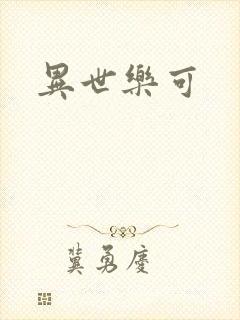 異世樂可
冀勇慶